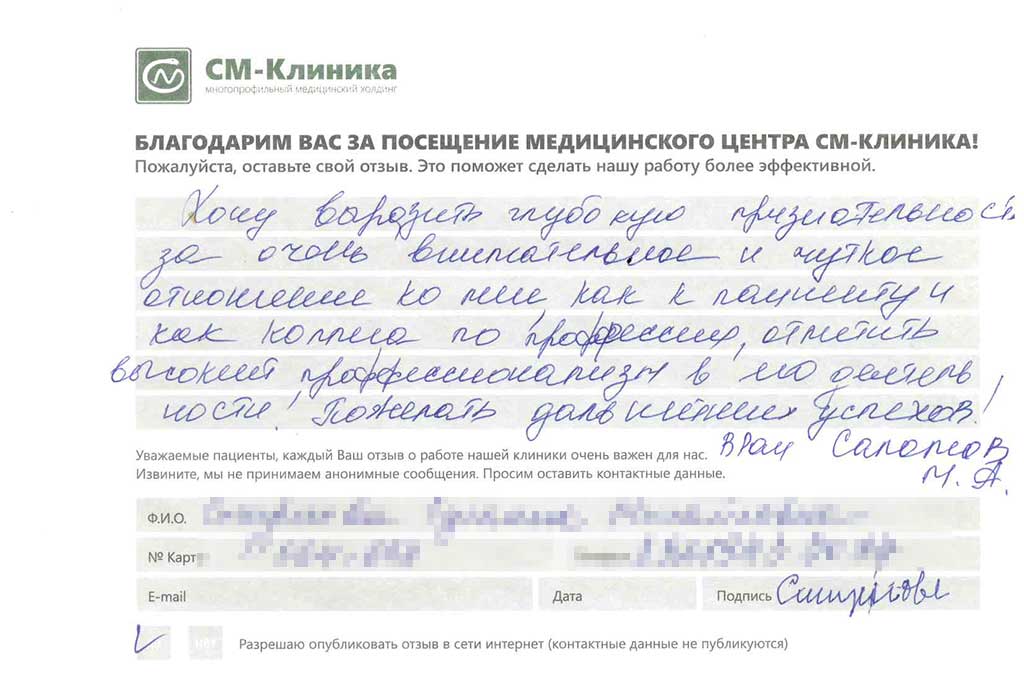 СМ-Клиника
многопрофильный медицинский холдинг
БЛАГОДАРИМ ВАС ЗА ПОСЕЩЕНИЕ МЕДИЦИНСКОГО ЦЕНТРА СМ-КЛИНИКА!
Пожалуйста, оставьте свой отзыв. Это поможет сделать нашу работу более эффективной.
Хочу выразить глубокую признательность
за очень внимательное и чуткое
отношение ко мне, как к пациенту и
как коллега по профессии, отметить
высокий профессионализм в его деятель
ности! Пожелать дальнейших успехов!
Уважаемые пациенты, каждый Ваш отзыв о работе нашей клиники очень важен для нас.
Врач
М. А.
Извините, мы не принимаем анонимные сообщения. Просим оставить контактные данные.
Ф.И.О.
№ Карт
E-mail
Дата
Подпись
нет
Разрешаю опубликовать отзыв в сети интернет (контактные данные не публикуются)